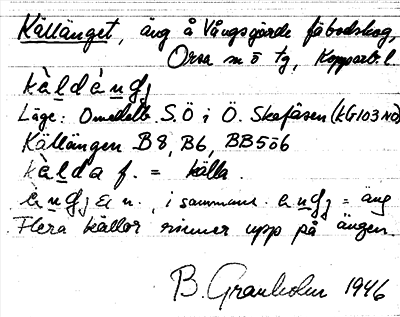 Källänget, äng å Vångsgärde fäbodskog,
Orsa sn ö tg, Kopparb. l.
kàldàngj
Läge: Omedelb. S.Ö i Ö. Skafåsen (KG103NÖ)
Källängen B8, B6, BB5ö6
kàlda f. = källa.
àngj n., i sammans. angj = äng
Flera källor rinner upp på ängen.
B. Granholm 1946